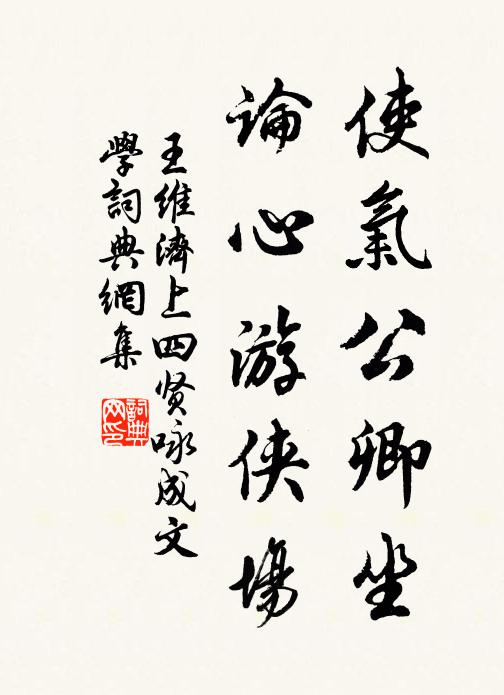 使氣公卿坐
論心游侠場
王維濟上四贤咏成文
學詞典網集
詞典
网印